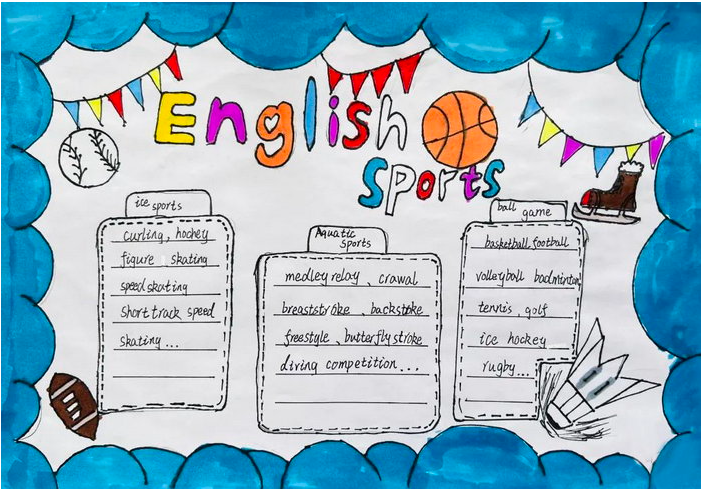 English
Sports
ice sports
curling, hochey
figure skating
speedskating
short track speed
skating...
Aquatic
sports
medley relay、crawal
breaststroke、backstoke
freestyle、butterfly stroke
diving competition...
ball
game
basketball football
volleyball badminton
tennis, golf
ice hockey
rugby...